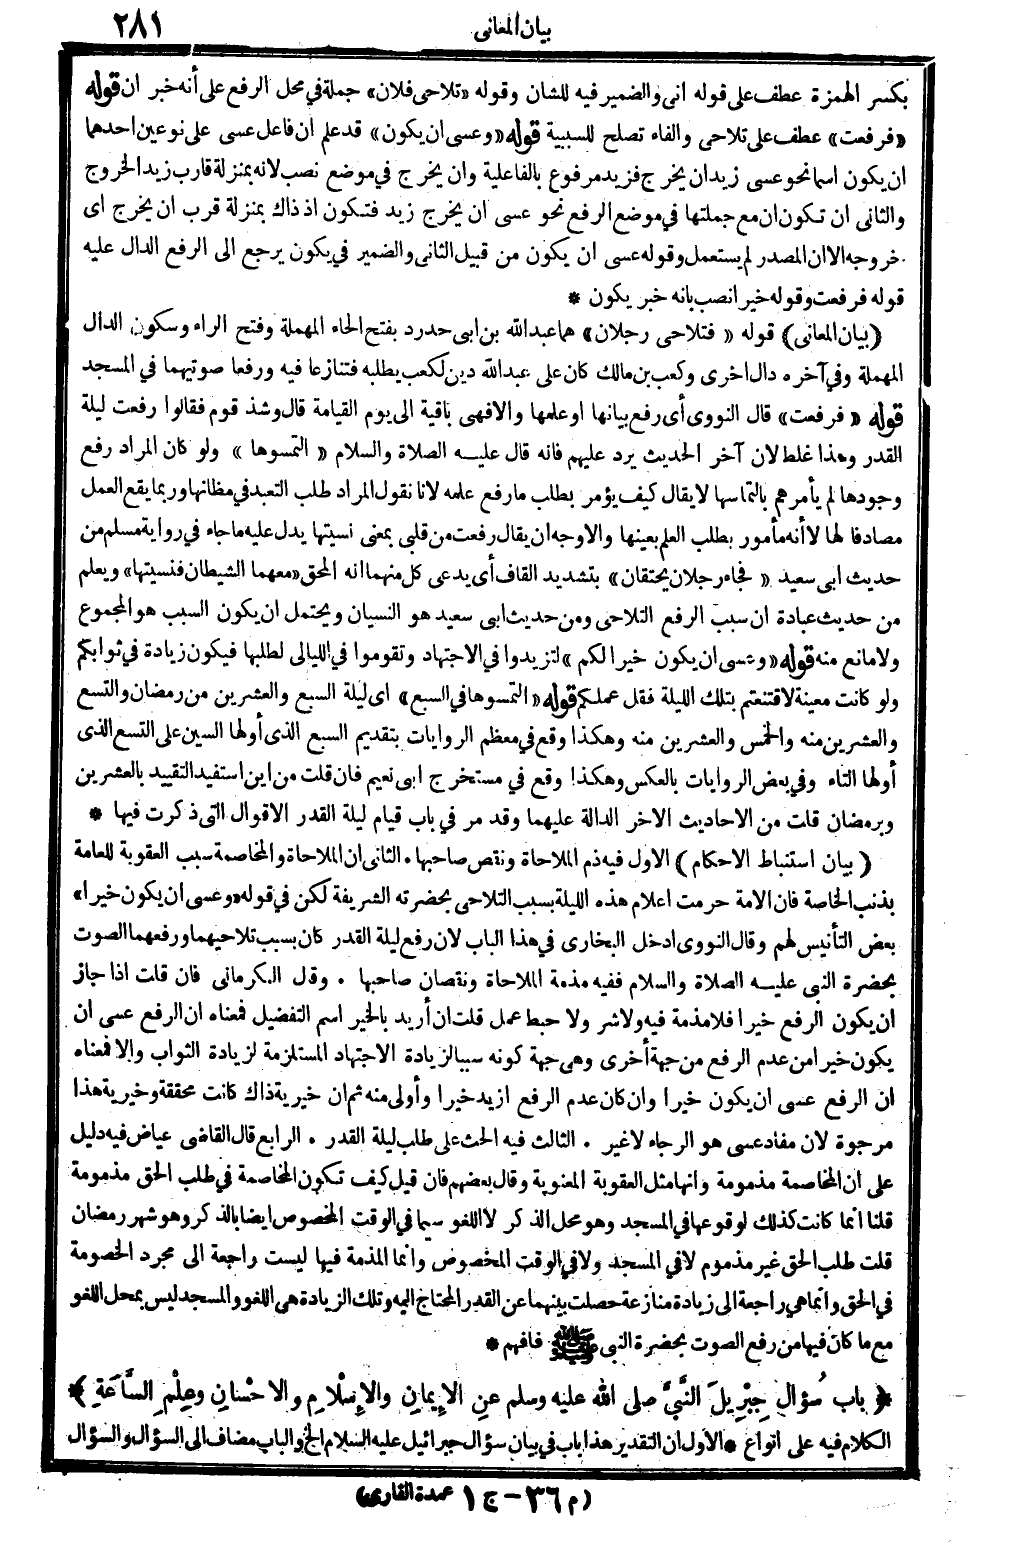 بيان المعانى ٢٨١
بكسر الهمزة عطف على قوله انى والضمير فيه للشان وقوله «تلاحى فلان» جملة في محل الرفع على أنه خبر ان قوله
«فرفعت» عطف على تلاحى والفاء تصلح للسببية قوله «وعسى ان يكون» قد علم ان فاعل عسى على نوعين احدهما
ان يكون اسما نحو عسى زيد ان يخرج فزيد مرفوع بالفاعلية وان يخرج في موضع نصب لانه بمنزلة قارب زيد الخروج
والثانى ان تكون ان مع جملتها في موضع الرفع نحو عسى ان يخرج زيد فتكون اذ ذاك بمنزلة قرب ان يخرج اى
خروجه الا ان المصدر لم يستعمل وقوله عسى ان يكون من قبيل الثانى والضمير في يكون يرجع الى الرفع الدال عليه
قوله فرفعت وقوله خيرا نصب بانه خبر يكون *
(بيان المعانى) قوله « فتلاحى رجلان» هما عبدالله بن ابى حدرد بفتح الحاء المهملة وفتح الراء وسكون الدال
المهملة وفي آخره دال اخرى وكعب بن مالك كان على عبد الله دين لكعب يطلبه فتنازعا فيه ورفعا صوتيهما في المسجد
قوله « فرفعت» قال النووى أى رفع بيانها او علمها والا فهى باقية الى يوم القيامة قال وشذ قوم فقالوا رفعت ليلة
القدر وهذا غلط لان آخر الحديث يرد عليهم فانه قال عليه الصلاة والسلام « التمسوها » ولو كان المراد رفع
وجودها لم يأمرهم بالتماسها لا يقال كيف يؤمر بطلب ما رفع علمه لانا نقول المراد طلب التعبد في مظانها وربما يقع العمل
مصادفا لها لا أنه مأمور بطلب العلم بعينها والاوجه ان يقال رفعت من قلبى بمعنى نسيتها يدل عليه ما جاء في رواية مسلم من
حديث ابى سعيد « فجاء رجلان يحتقان» بتشديد القاف أى يدعى كل منهما انه المحق «معهما الشيطان فنسيتها» ويعلم
من حديث عبادة ان سبب الرفع التلاحى ومن حديث ابى سعيد هو النسيان ويحتمل ان يكون السبب هو المجموع
ولا مانع منه قوله «وعسى ان يكون خيرا لكم» لتزيدوا في الاجتهاد وتقوموا في الليالى لطلبها فيكون زيادة في ثوابكم
ولو كانت معينة لاقتنعتم بتلك الليلة فقل عملكم قوله «التمسوها في السبع» اى ليلة السبع والعشرين من رمضان والتسع
والعشرين منه والخمس والعشرين منه وهكذا وقع في معظم الروايات بتقديم السبع الذى أولها السين على التسع الذى
أولها التاء وفي بعض الروايات بالعكس وهكذا وقع في مستخرج ابى نعيم فان قلت من اين استفيد التقييد بالعشرين
وبرمضان قلت من الاحاديث الاخر الدالة عليهما وقد مر في باب قيام ليلة القدر الاقوال التى ذكرت فيها *
( بيان استنباط الاحكام ) الاول فيه ذم الملاحاة ونقص صاحبها . الثانى ان الملاحاة والمخاصمة سبب العقوبة للعامة
بذنب الخاصة فان الامة حرمت اعلام هذه الليلة بسبب التلاحى بحضرته الشريفة لكن في قوله «وعسى ان يكون خيرا»
بعض التأنيس لهم وقال النووى ادخل البخارى في هذا الباب لان رفع ليلة القدر كان بسبب تلاحيهما ورفعهما الصوت
بحضرة النبى عليه الصلاة والسلام ففيه مذمة الملاحاة ونقصان صاحبها . وقال الكرمانى فان قلت اذا جاز
ان يكون الرفع خيرا فلا مذمة فيه ولا شر ولا حبط عمل قلت ان أريد بالخير اسم التفضيل فمعناه ان الرفع عسى ان
يكون خيرا من عدم الرفع من جهة أخرى وهى جهة كونه سببا لزيادة الاجتهاد المستلزمة لزيادة الثواب والا فمعناه
ان الرفع عسى ان يكون خيرا وان كان عدم الرفع ازيد خيرا وأولى منه ثم ان خيرية ذاك كانت محققة وخيرية هذا
مرجوة لان مفاد عسى هو الرجاء لا غير . الثالث فيه الحث على طلب ليلة القدر . الرابع قال القاضى عياض فيه دليل
على ان المخاصمة مذمومة وانها مثل العقوبة المعنوية وقال بعضهم فان قيل كيف تكون المخاصمة في طلب الحق مذمومة
قلنا انما كانت كذلك لوقوعها في المسجد وهو محل الذكر لا اللغو سيما في الوقت المخصوص ايضا بالذكر وهو شهر رمضان
قلت طلب الحق غير مذموم لا في المسجد ولا في الوقت المخصوص وانما المذمة فيها ليست راجعة الى مجرد الخصومة
في الحق وانما هي راجعة الى زيادة منازعة حصلت بينهما عن القدر المحتاج اليه وتلك الزيادة هي اللغو والمسجد ليس بمحل اللغو
مع ما كان فيها من رفع الصوت بحضرة النبى ﷺ فافهم *
﴿ باب سُؤالِ جِبْرِيلَ النَّبِيَّ صلى الله عليه وسلم عنِ الإيمانِ والإسْلامِ والاحْسانِ وعِلْمِ السَّاعَةِ ﴾
الكلام فيه على انواع * الاول ان التقدير هذا باب في بيان سؤال جبرائيل عليه السلام الخ والباب مضاف الى السؤال والسؤال
(م ٣٦ - ج ١ عمدة القارى)